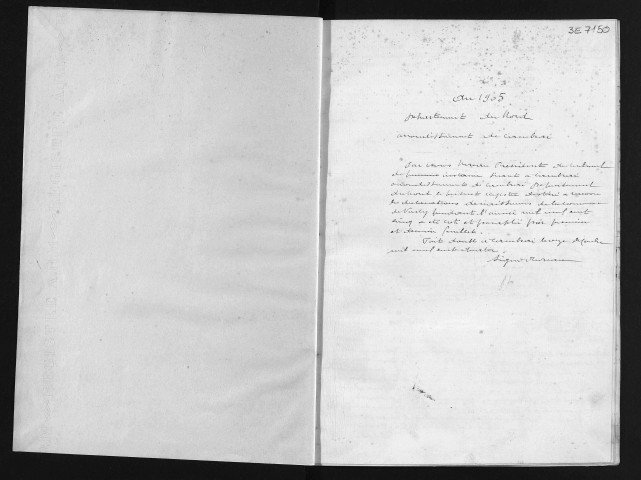 3E 7150
an 1905
département du Nord
arrondissement de Cambrai
Par nous Président du tribunal
de première instance séant à Cambrai
arrondissement de Cambrai département
du nord le présent registre destiné à recevoir
les déclarations de naissances de la commune
de pendant l'année mil neuf cent
cinq a été coté et paraphé par premier
et dernier feuillet.
Fait double à Cambrai le onze
mil neuf cent quatre.
Signé